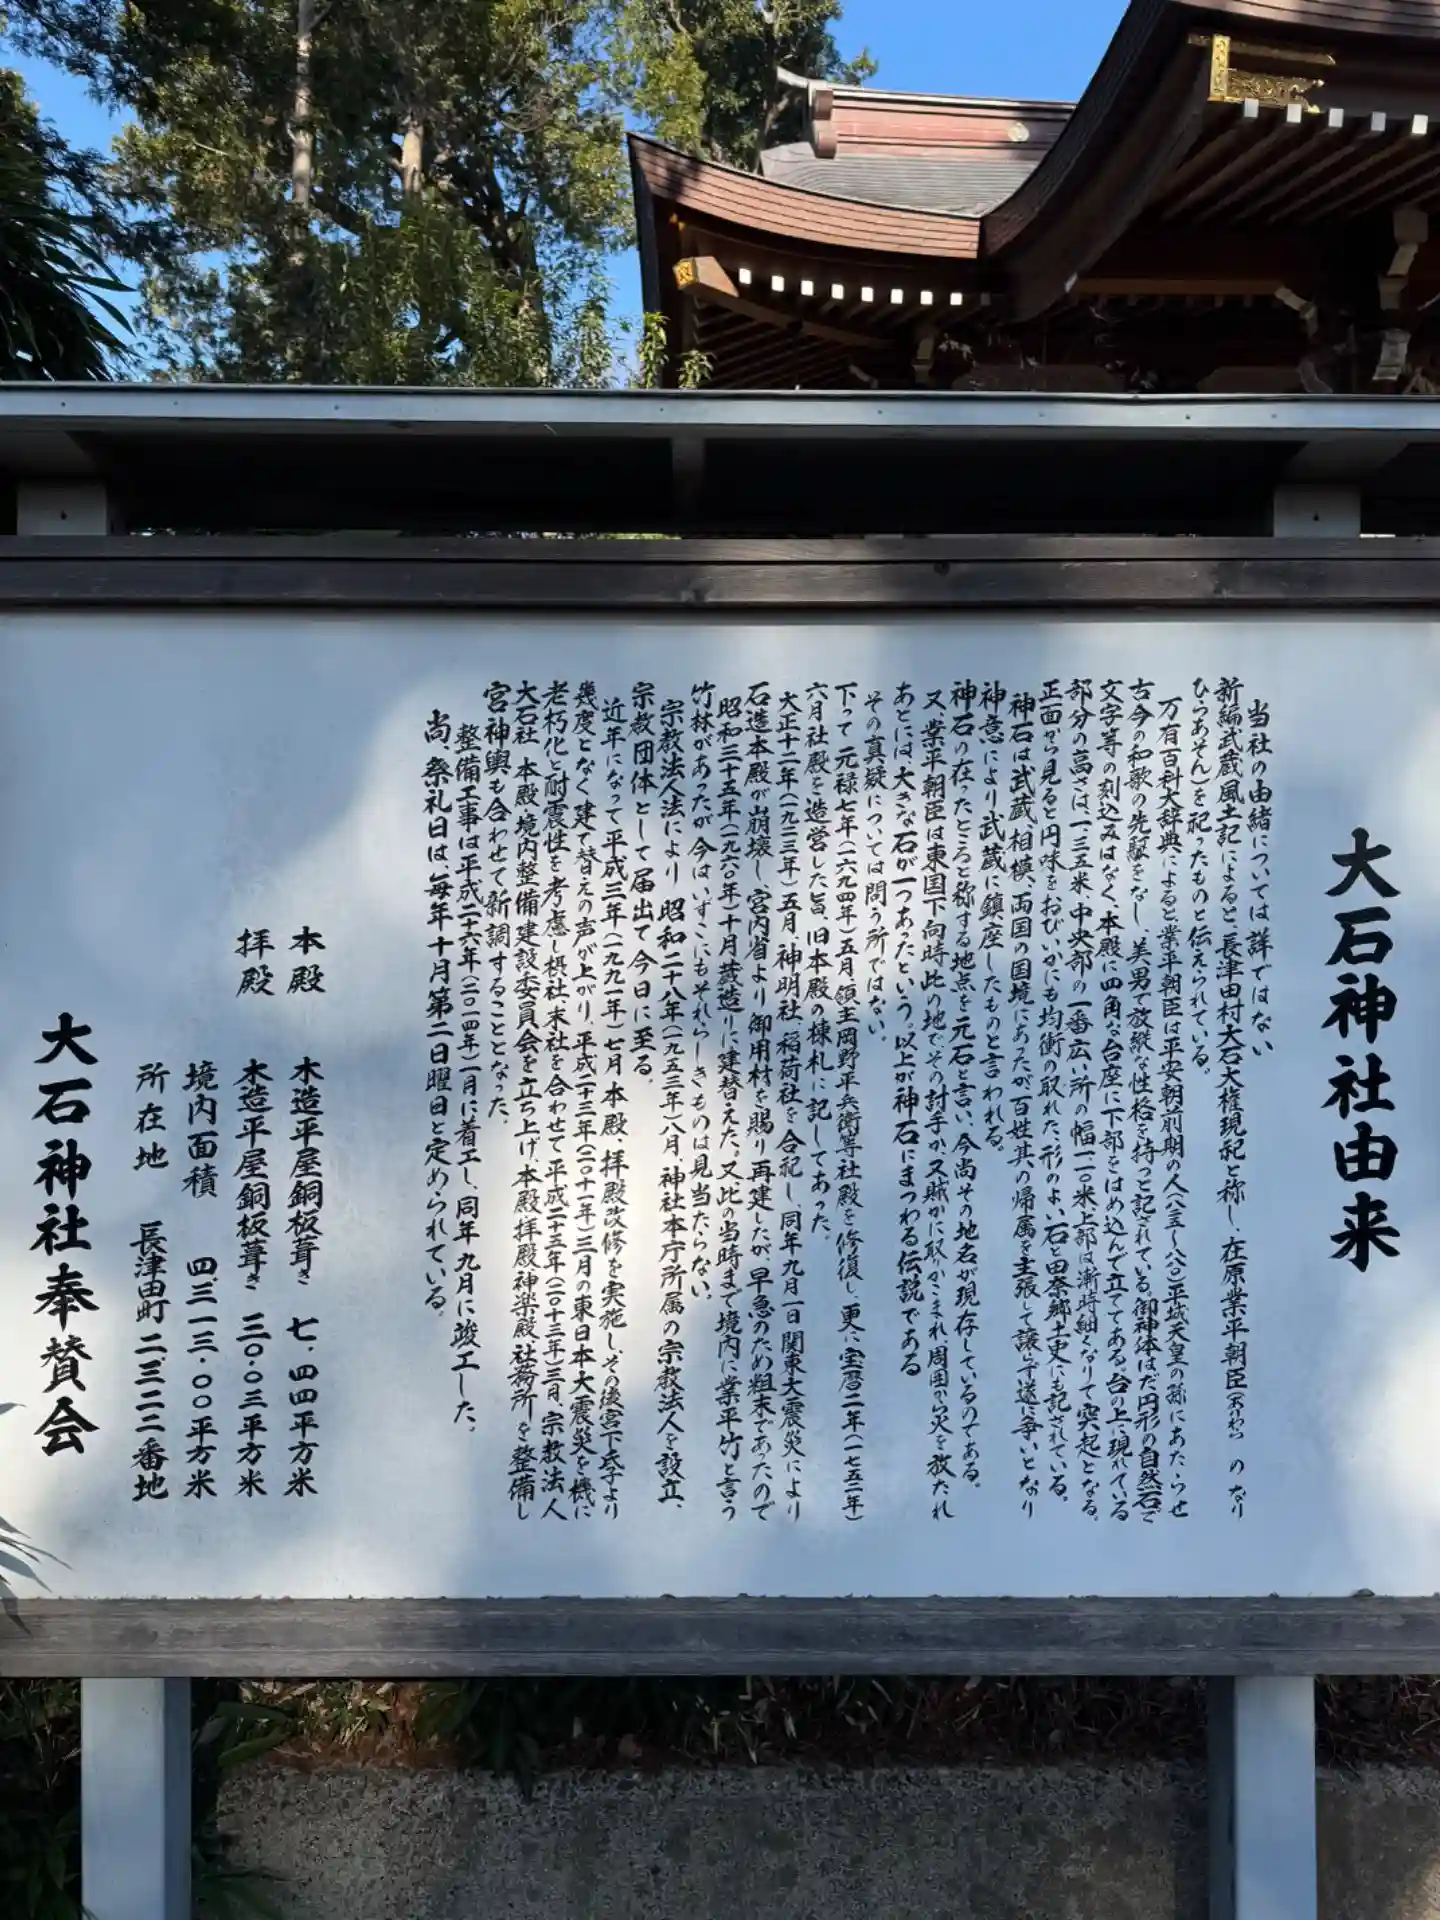 大石神社由来
当社の由緒については詳ではない
新編武蔵風土記によると、長津田村大石大権現祀と称し、在原業平朝臣(ありわら の なり
ひらあそん)を祀ったものと伝えられている。
万有百科大辞典によると、業平朝臣は平安朝前期の人(八二五~八八〇)平城天皇の孫にあたらせ
古今の和歌の先駆をなし、美男で放縦な性格を持つと記されている。御神体はだ円形の自然石で
文字等の刻込みはなく、本殿に四角な台座に下部をはめ込んで立ててある。台の上に現れている
部分の高さは、一.三五米、中央部の一番広い所の幅一.一〇米、上部は漸時細くなりて突起となる。
正面から見ると円味をおびいかにも均衡の取れた、形のよい石と田奈郷土史にも記されている。
神石は武蔵、相模、両国の国境にあったが百姓其の帰属を主張して譲らず遂に争いとなり
神意により武蔵に鎮座したものと言われる。
神石の在ったところと称する地点を元石と言い、今尚その地名が現存しているのである。
又、業平朝臣は東国下向時此の地でその討手か、又賊かに取りかこまれ周囲から火を放たれ
あとには、大きな石が一つあったという。以上が神石にまつわる伝説である
その真疑については問う所ではない。
下って元禄七年(一六九四年)五月領主岡野平兵衛等社殿を修復し、更に宝暦二年(一七五二年)
六月社殿を造営した旨、旧本殿の棟札に記してあった。
大正十二年(一九二三年)五月、神明社、稲荷社を合祀し、同年九月一日関東大震災により
石造本殿が崩壊し、宮内省より御用材を賜り再建したが、早急のため粗末であったので
昭和三十五年(一九六〇年)十月茸造りに建替えた。又、此の当時まで境内に業平竹と言う
竹林があったが今はいずこにもそれらしきものは見当たらない。
宗教法人法により昭和二十八年(一九五三年)八月、神社本庁所属の宗教法人を設立、
宗教団体として届出て今日に至る。
近年になって平成三年(一九九一年)七月本殿、拝殿改修を実施し、その後宮下氏子より
幾度となく建て替えの声が上がり、平成二十三年(二〇十一年)三月の東日本大震災を機に
老朽化と耐震性を考慮し摂社、末社を合わせて平成二十五年(二〇十三年)三月、宗教法人
大石社 本殿・境内整備建設委員会を立ち上げ、本殿拝殿神楽殿、社務所を整備し
宮神輿も合わせて新調することとなった。
整備工事は平成二十六年(二〇一四年)一月に着工し、同年九月に竣工した。
尚、祭礼日は毎年十月第二日曜日と定められている。
本殿 木造平屋銅板葺き 七.四四平方米
拝殿 木造平屋銅板葺き 三〇.〇三平方米
境内面積 四、三一三.〇〇平方米
所在地 長津田町二三二二番地
大石神社奉賛会